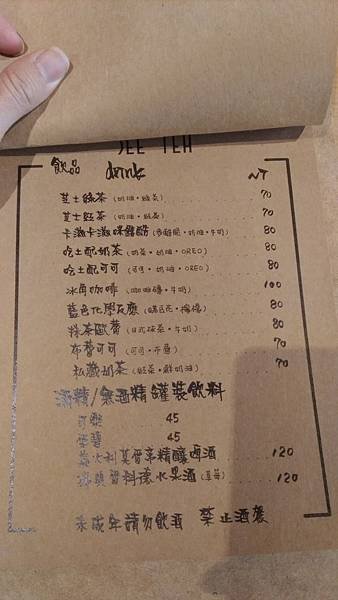 SEE YEH
飲品 drink NT
芝士綠茶(奶油·綠茶) 70
芝士紅茶(奶油·紅茶) 70
卡滋卡滋咪 80
吃土配奶茶(奶茶·奶油·OREO) 80
吃土配可可(可可·奶油·OREO) 80
冰角咖啡(咖啡磚·牛奶) 100
藍色化學反應(蝶豆花·檸檬) 80
抹茶歐蕾(日式抹茶·牛奶) 80
布蕾可可(可可·布蕾) 70
私藏奶茶(紅茶·鮮奶油) 70
酒精/無酒精罐裝飲料
可樂 45
雪碧 45
義大利莫雷蒂精釀啤酒 120
水果酒(草莓) 120
未成年請勿飲酒 禁止酒駕